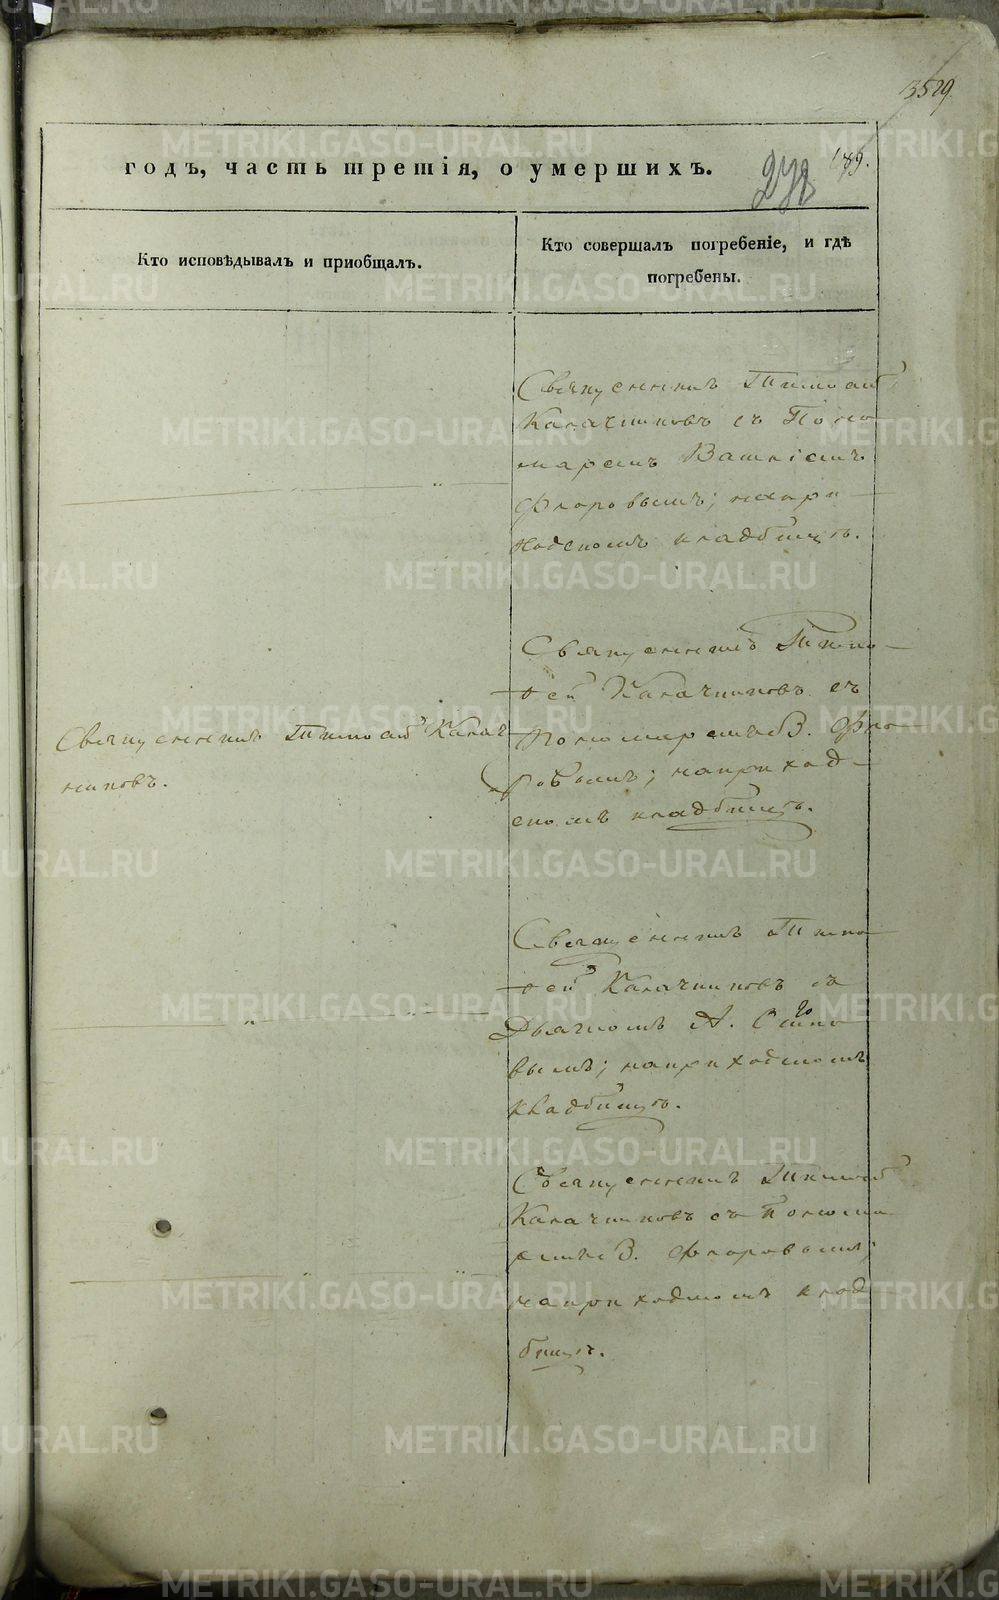 1529
годъ, часть третія, о умершихъ.
272
189.
Кто исповѣдывалъ и приобщалъ.
Кто совершалъ погребеніе, и гдѣ
погребены.
Священникъ Тимоѳей
Калачниковъ съ Поно
маремъ Васи
Флоровымъ; на при
ходскомъ кладбищѣ.
Священникъ Тимо
ѳей Калачниковъ съ
Пономаремъ В. Фло
ровымъ; на приход
скомъ кладбищѣ.
Священникъ Тимоѳей Калач
никовъ.
Священникъ Тимо
ѳей Калачниковъ съ
Дьячкомъ А.
вымъ; на приходскомъ
кладбищѣ.
Священникъ Тимоѳей
Калачниковъ съ Понома
ремъ В. Флоровымъ;
на приходскомъ клад
бищѣ.
METRIKI.GASO-URAL.RU